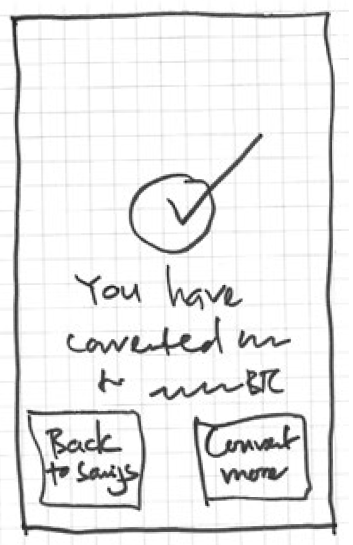 You have
converted
to BTC
Back
to savings
Convert
more